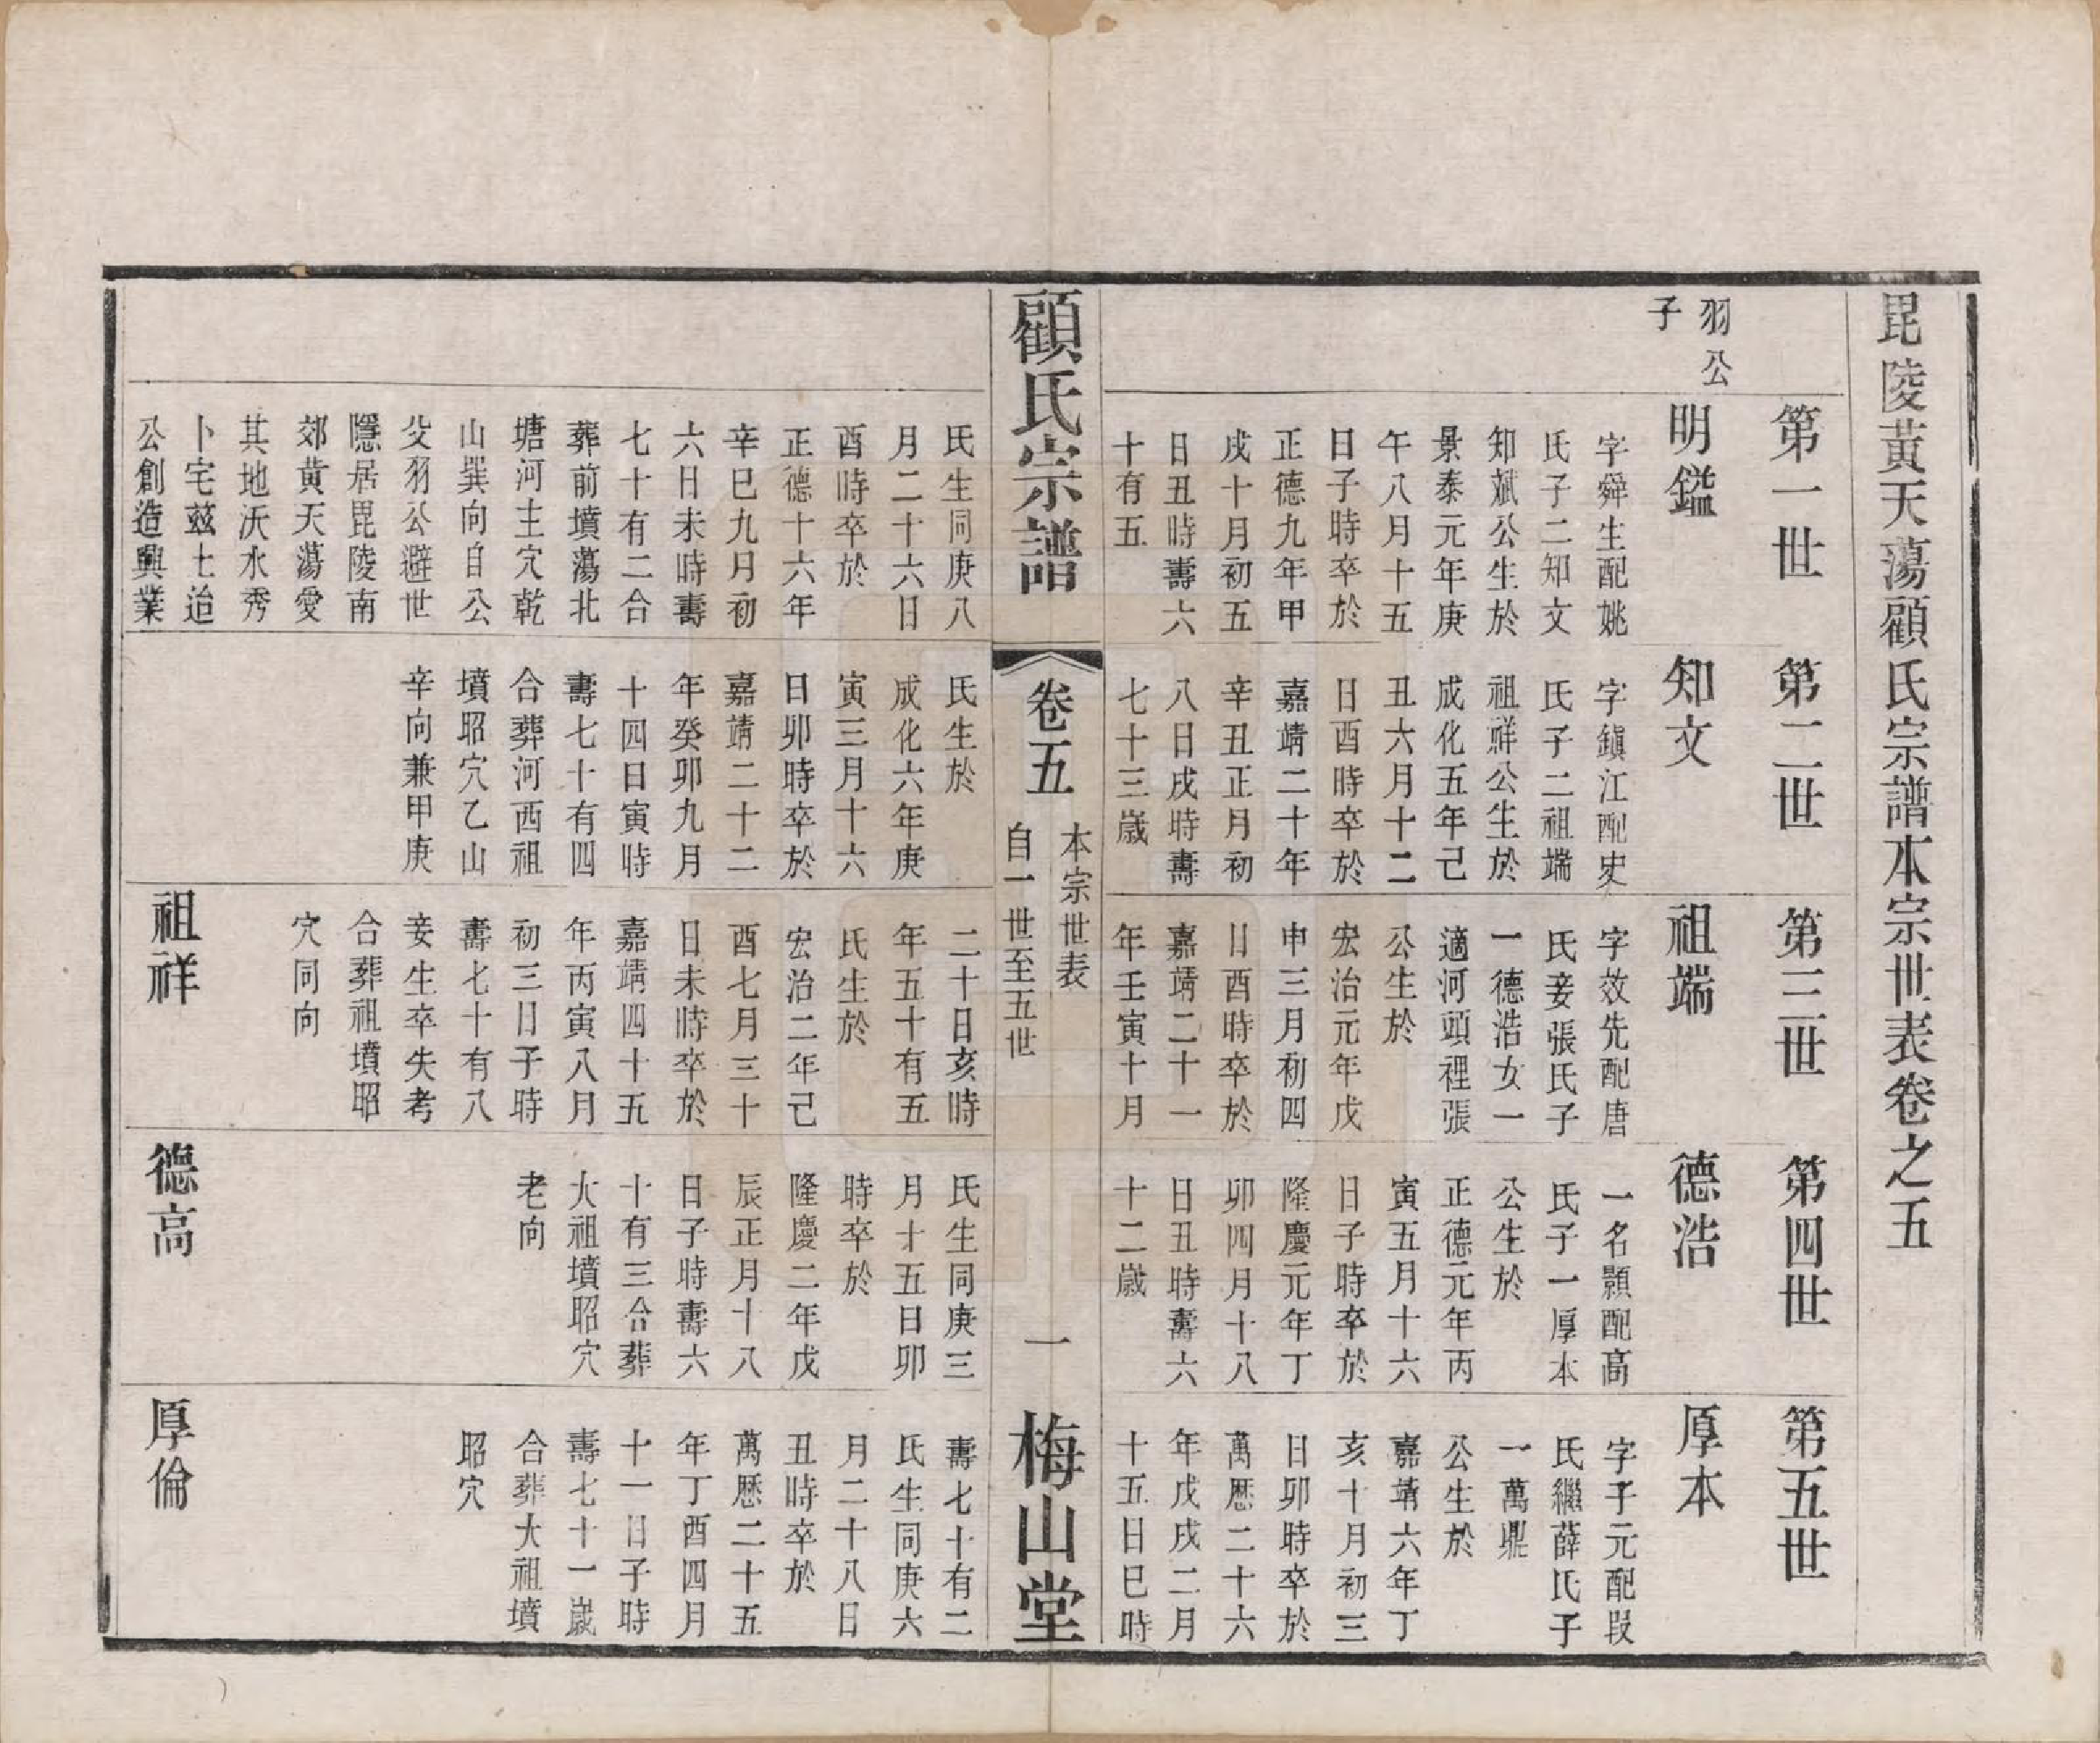 毘陵黃天蕩顧氏宗譜本宗世表卷之五
第一世
第二世
第三世
第四世
第五世
羽公
子
明鑑
字舜生配姚
氏子二知文
知斌公生於
景泰元年庚
午八月十五
日子時卒於
正德九年甲
戌十月初五
日丑時壽六
十有五
氏生同庚八
月二十六日
酉時卒於
正德十六年
辛巳九月初
六日未時壽
七十有二合
葬前墳蕩北
塘河主穴乾
山巽向自公
父羽公避世
隱居毘陵南
郊黃天蕩愛
其地沃水秀
卜宅茲土迨
公創造興業
知文
字鎮江配史
氏子二祖端
祖祥公生於
成化五年己
丑六月十二
日酉時卒於
嘉靖二十年
辛丑正月初
八日戌時壽
七十三歲
氏生於
成化六年庚
寅三月十六
日卯時卒於
嘉靖二十二
年癸卯九月
十四日寅時
壽七十有四
合葬河西祖
墳昭穴乙山
辛向兼甲庚
祖端
字效先配唐
氏妾張氏子
一德浩女一
適河頭裡張
公生於
宏治元年戊
申三月初四
日酉時卒於
嘉靖二十一
年壬寅十月
二十日亥時
年五十有五
氏生於
宏治二年己
酉七月三十
日未時卒於
嘉靖四十五
年丙寅八月
初三日子時
壽七十有八
妾生卒失考
合葬祖墳昭
穴同向
祖祥
德浩
一名顥配高
氏子一厚本
公生於
正德元年丙
寅五月十六
日子時卒於
隆慶元年丁
卯四月十八
日丑時壽六
十二歲
氏生同庚三
月十五日卯
時卒於
隆慶二年戊
辰正月十八
日子時壽六
十有三合葬
大祖墳昭穴
老向
德高
厚本
字子元配段
氏繼薛氏子
一萬鼎
公生於
嘉靖六年丁
亥十月初三
日卯時卒於
萬歷二十六
年戊戌二月
十五日巳時
壽七十有二
氏生同庚六
月二十八日
丑時卒於
萬歷二十五
年丁酉四月
十一日子時
壽七十一歲
合葬大祖墳
昭穴
厚倫
顧氏宗譜
卷五
本宗世表
自一世至五世
一
梅山堂